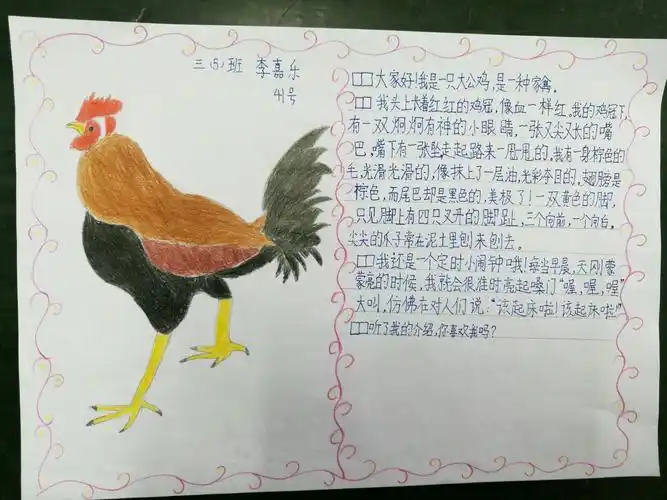 三(5)班 李嘉乐
41号
□□大家好!我是一只大公鸡,是一种家禽。
□□我头上长着红红的鸡冠,像血一样红。我的鸡冠下,
有一双炯炯有神的小眼睛,一张又尖又长的嘴
巴,嘴下有一张坠,走起路来一甩一甩的。我有一身棕色的
毛,光滑光滑的,像抹上了一层油,光彩夺目的,翅膀是
棕色,而尾巴却是黑色的,美极了!一双黄色的脚,
只见脚上有四只叉开的脚趾,三个向前,一个向后,
尖尖的爪子常在泥土里刨来刨去。
□□我还是一个定时小闹钟哦!每当早晨,天刚蒙
蒙亮的时候,我就会很准时亮起嗓门“喔,喔,喔”
大叫,仿佛在对人们说:“该起床啦!该起床啦!”
□□听了我的介绍,你喜欢我吗?